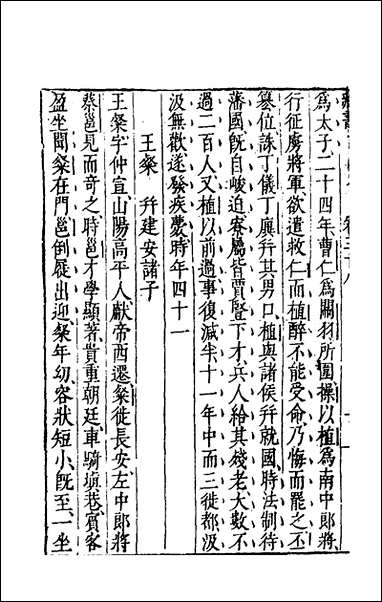 為太子二十四年曹仁為關羽所圍操以植為南中郎將
行征虜將軍欲遣救仁而植醉不能受命乃悔而罷之丕
篡位誅丁儀丁廙幷其男口植與諸侯幷就國時法制待
藩國既自峻迫寮屬皆賈豎下才兵人給其殘老大數不
過二百人又植以前過事復減半十一年中而三徙都汲
汲無歡遂發疾薨時年四十一
王粲 幷建安諸子
王粲字仲宣山陽高平人獻帝西遷粲徙長安左中郎將
蔡邕見而奇之時邕才學顯著貴重朝廷車騎填巷賓客
盈坐聞粲在門邕倒屐出迎粲年幼容狀短小既至一坐